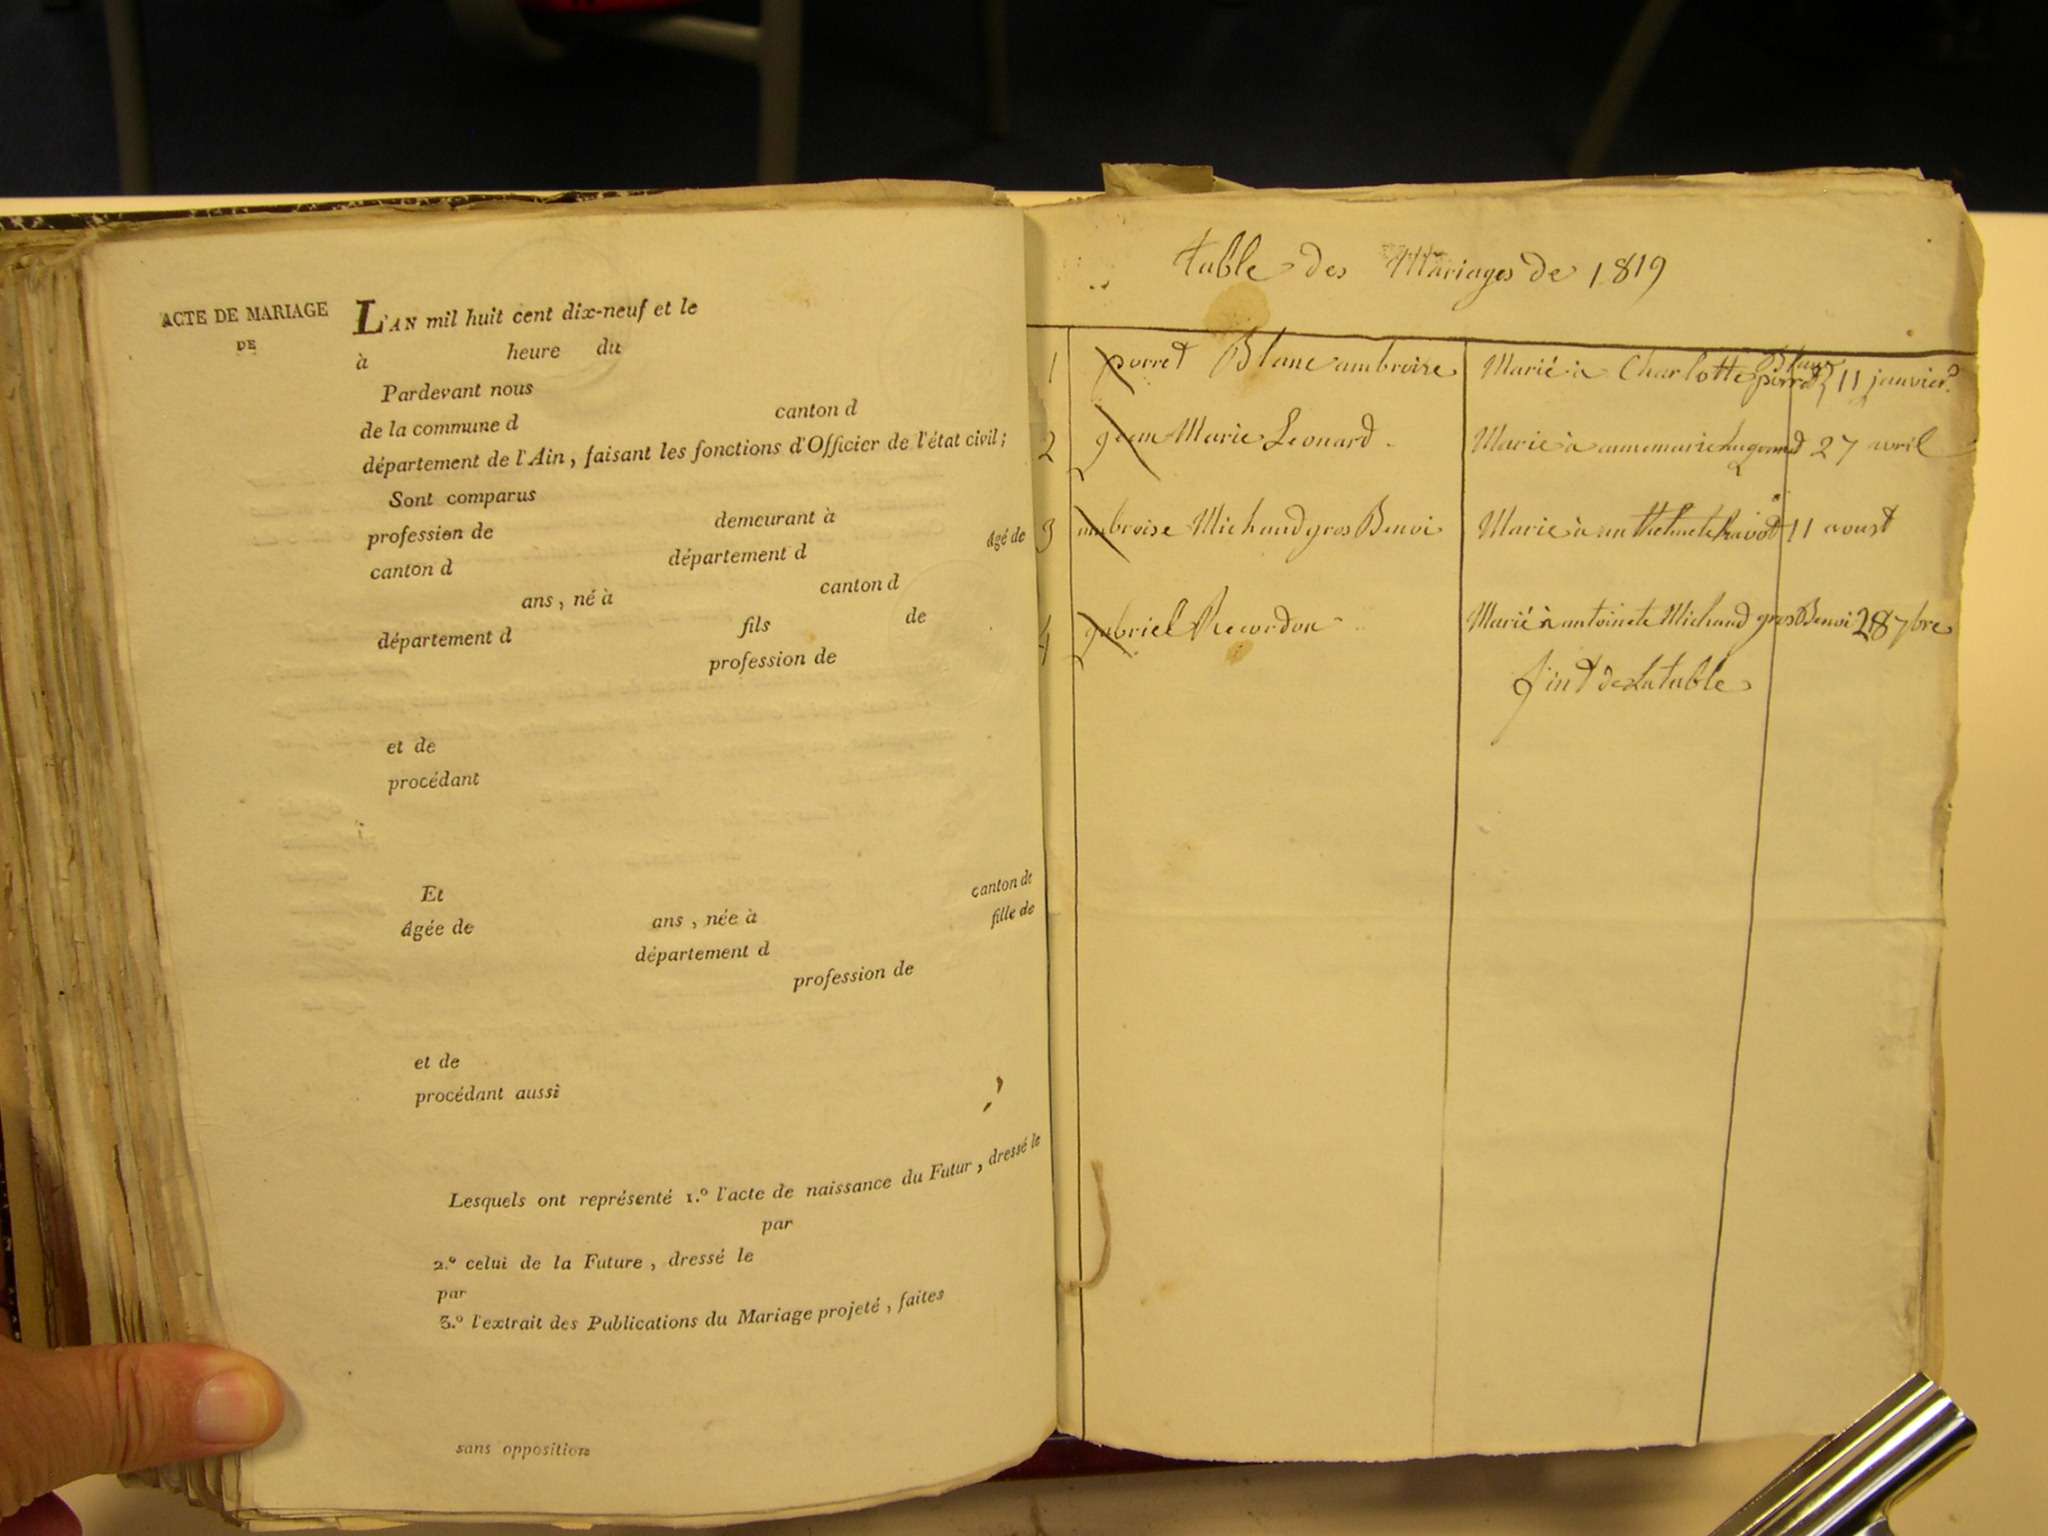 ACTE DE MARIAGE
DE
L'AN mil huit cent dix-neuf et le
à heure du
Pardevant nous
de la commune d canton d
département de l'Ain, faisant les fonctions d'Officier de l'état civil;
Sont comparus
profession de demeurant à
canton d département d âgé de
ans, né à canton d
département d fils de
profession de
et de
procédant
Et canton de
âgée de ans, née à fille de
département d
profession de
et de
procédant aussi
Lesquels ont représenté 1.º l'acte de naissance du Futur, dressé le
par
2.º celui de la Future, dressé le
par
3.º l'extrait des Publications du Mariage projeté, faites
sans opposition
table des Mariages de 1819
1 porret Blanc ambroise Marié a Charlotte Blanc porret 11 janvier
2 jean Marie Leonard Marié a anne marie 27 avril
3 ambroise Michaud gros Benoi Marié à 11 aoust
4 gabriel Recordon Marié à antoinete Michaud gros Benoi 28 7bre
fint de la table